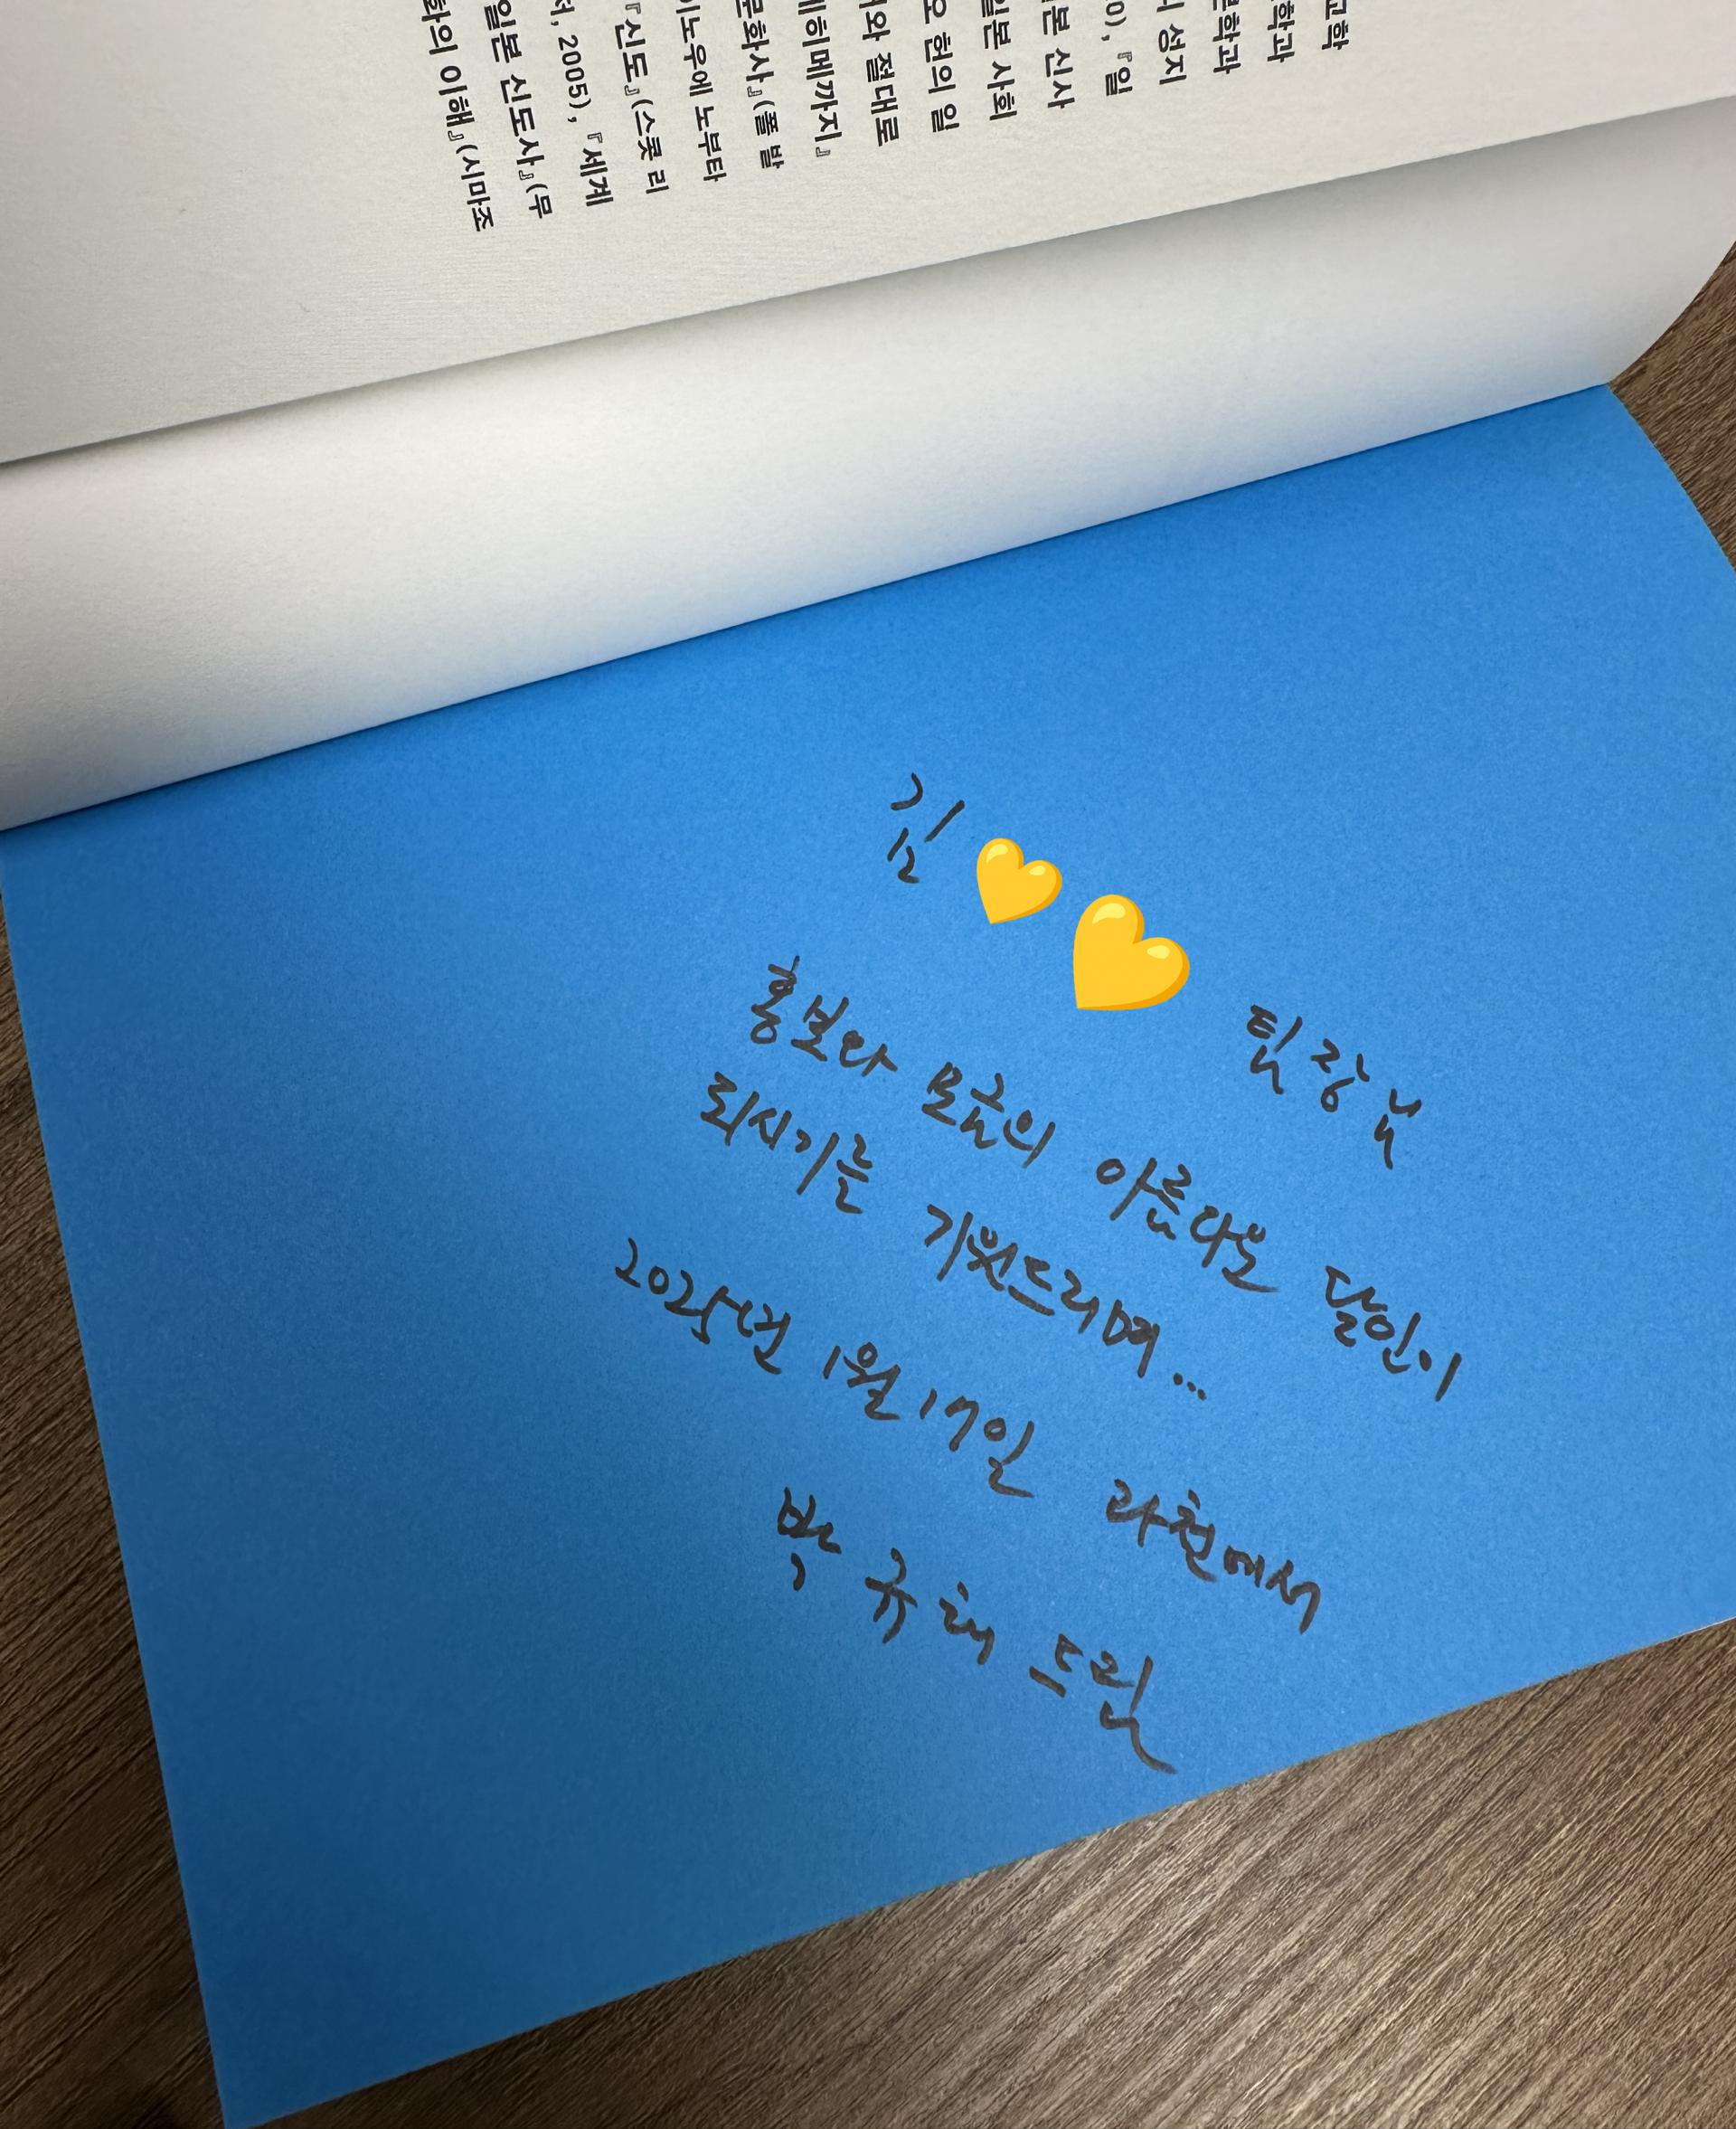 교학
학과
학과
성지
0), 『일
본 신사
일본 사회
오 헌의 일
와 절대로
히메까지』
문화사』(폴 발
이노우에 노부타
『신도』(스콧 리
서, 2005), 『세계
일본 신도사』(무
화의 이해』(시마조
김 💛💛 팀장님
홍보와 모금의 아름다운 달인이
되시기를 기원드리며...
2025년 1월 17일 과천에서
박규태 드림